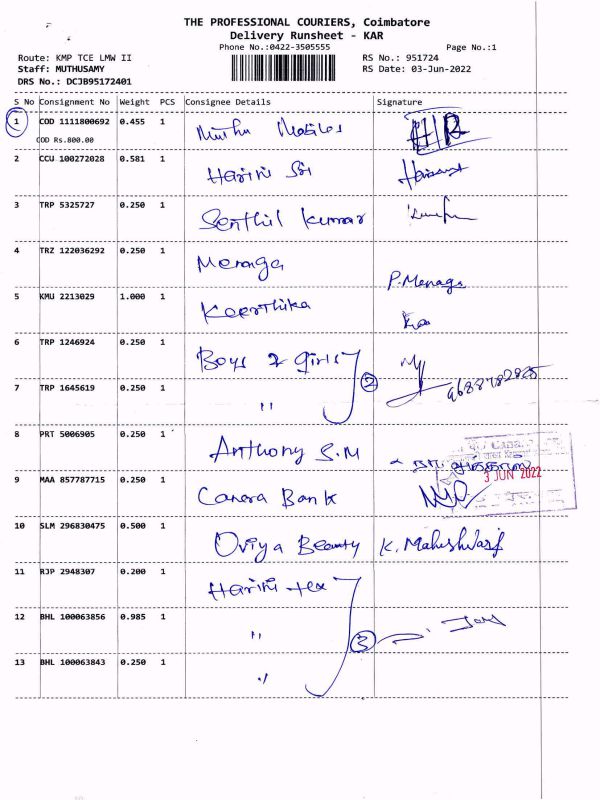 THE PROFESSIONAL COURIERS, Coimbatore
Delivery Runsheet - KAR
Phone No.:0422-3505555
Page No.:1
Route: KMP TCE LMW II
RS No.: 951724
Staff: MUTHUSAMY
RS Date: 03-Jun-2022
DRS No.: DCJB95172401
S No Consignment No Weight PCS Consignee Details Signature
1 COD 1111800692 0.455 1 Muthu Mobiles
COD Rs.800.00
2 CCU 100272028 0.581 1 Harini Sri
3 TRP 5325727 0.250 1 Senthil Kumar
4 TRZ 122036292 0.250 1 Menaga P. Menaga
5 KMU 2213029 1.000 1 Keerthika
6 TRP 1246924 0.250 1 Boys & Girls
2
7 TRP 1645619 0.250 1 "
8 PRT 5006905 0.250 1 Anthony S.M
9 MAA 857787715 0.250 1 Canara Bank
3 JUN 2022
10 SLM 296830475 0.500 1 Oviya Beauty K. Maheshwari
11 RJP 2948307 0.200 1 Harini tex
12 BHL 100063856 0.985 1 "
3
13 BHL 100063843 0.250 1 "